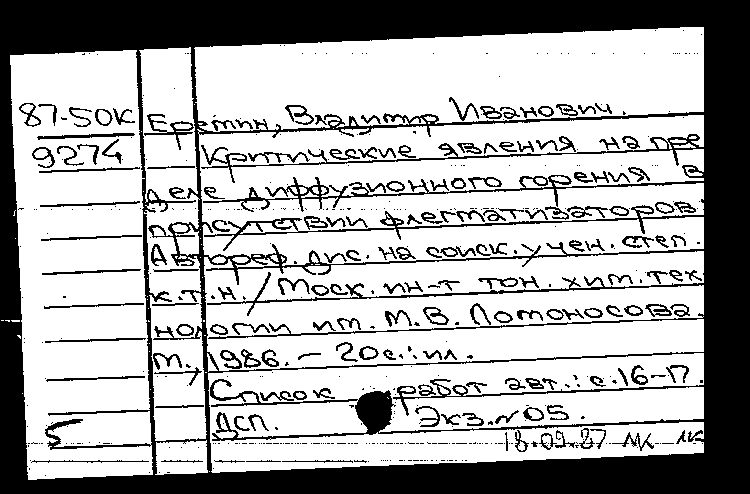 87-50к Еремин, Владимир Иванович.
9274 Критические явления на пре
деле диффузионного горения в
присутствии флегматизаторов:
Автореф. дис. на соиск. учен. степ.
к.т.н. / Моск. ин-т тон. хим. тех
нологии им. М.В. Ломоносова.
М., 1986. – 20с.: ил.
Список работ авт.: с.16-17.
ДСП. Экз. №05.
5 18.09.87 МК МК